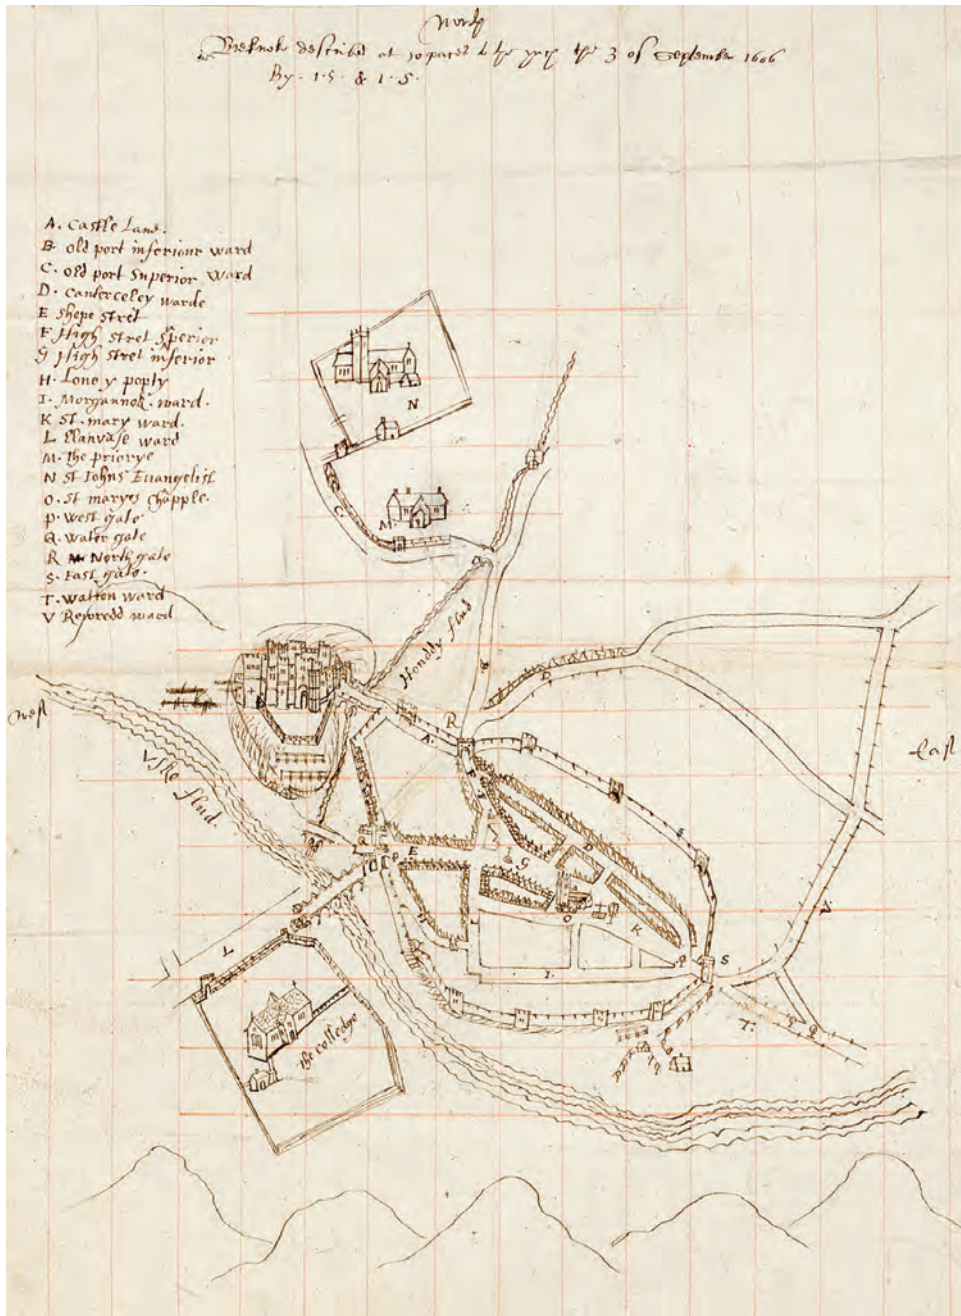 North
Breknok described at 10 paces to the ynch the 3 of September 1606
By . I . S . & I . S .
A. Castle Land.
B. old port inferiour ward
C. old port Superior Ward
D. Canterceley warde
E Shepe stret
F High stret Superior
G High stret inferior
H. Lone y popty
I. Morgannok ward.
K St. mary ward.
L Llanvase ward
M. the priorye
N St Johns Euangelist
O. St maryes Chapple.
P. West gate
Q. Water gate
R North gate
S. East gate.
T. Watton ward
V ward
N
C.
M.
Honddy flud
B
D
West
R
A.
East
Vske flud.
F
S
Q
P
E
D
G
V.
H
O
K
L
I.
S
the Colledge
T.